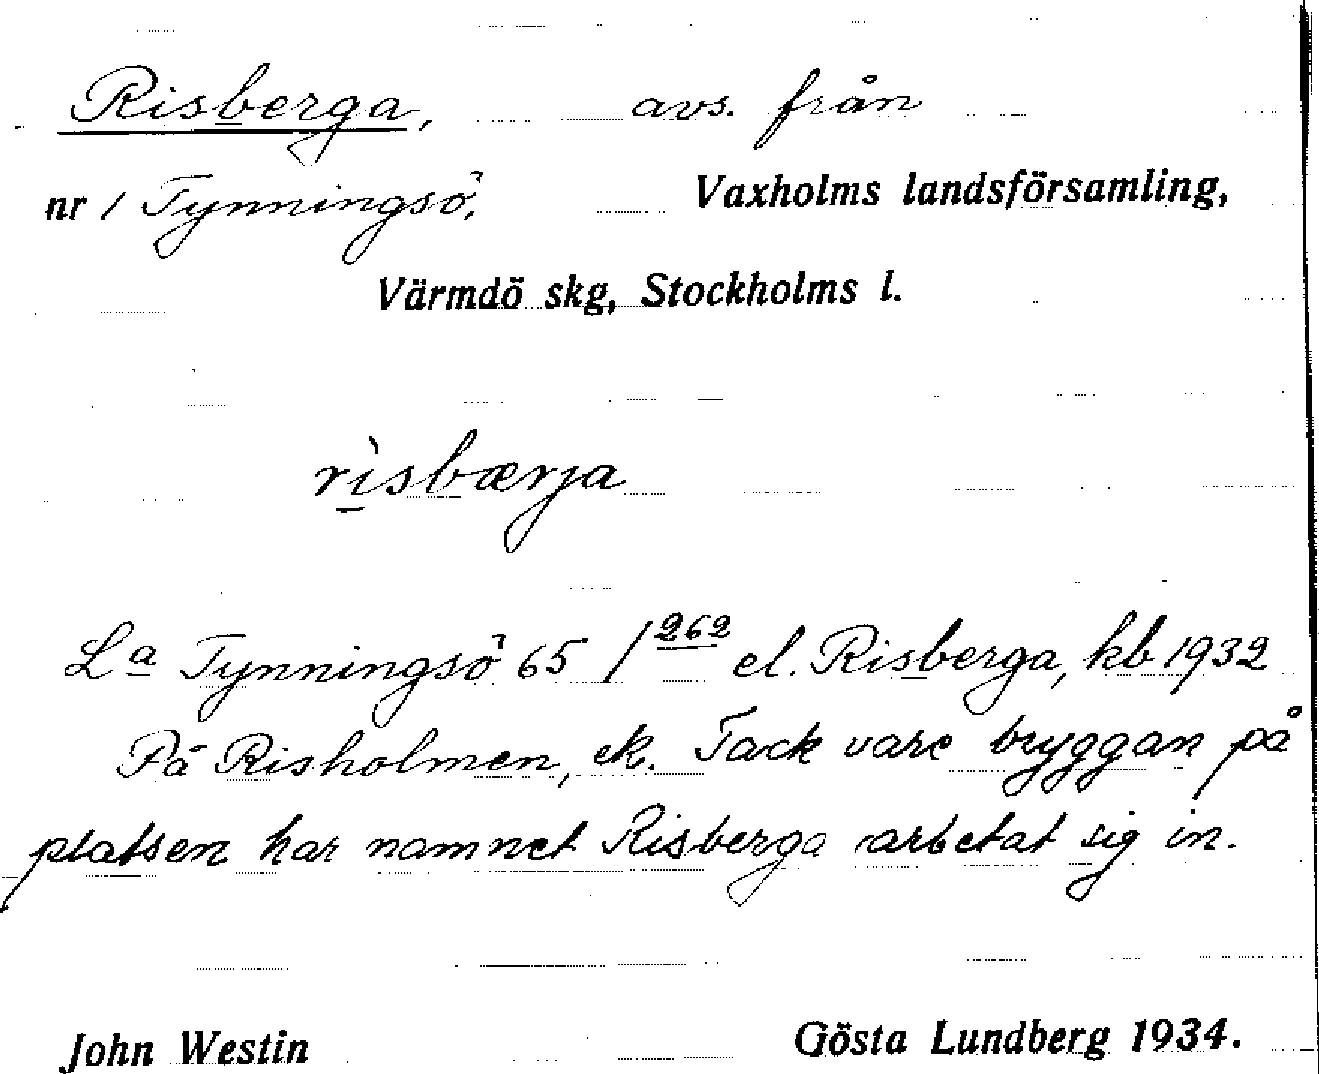 Risberga, avs. från
nr 1 Tynningsö, Vaxholms landsförsamling,
Värmdö skg, Stockholms l.
rìsbærja
La Tynningsö 65/262 el. Risberga, kb 1932
På Risholmen, ek. Tack vare bryggan på
platsen har namnet Risberga arbetat sig in.
John Westin Gösta Lundberg 1934.